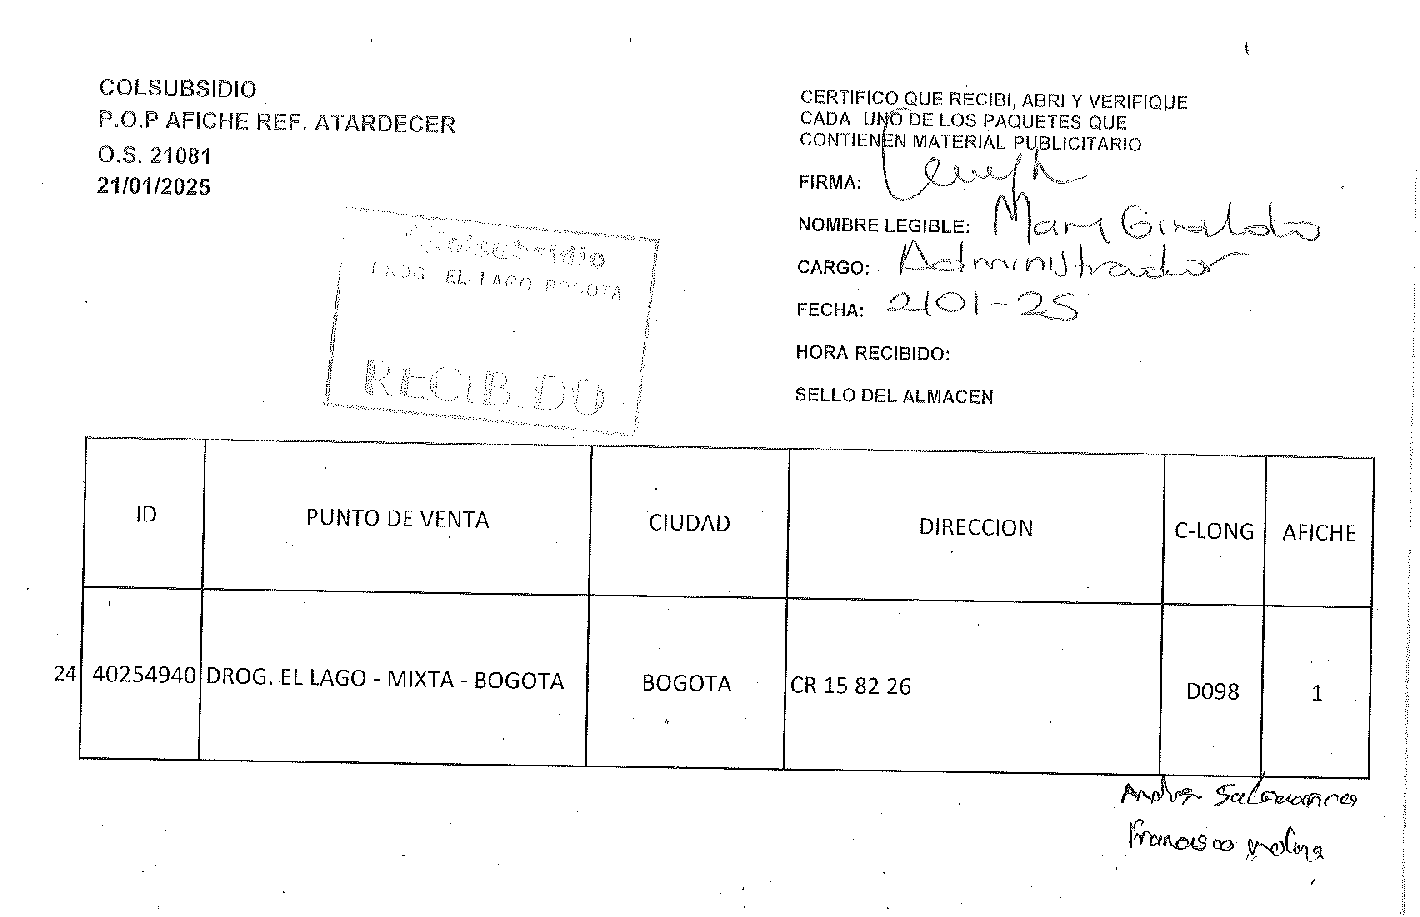 COLSUBSIDIO
P.O.P AFICHE REF. ATARDECER
O.S. 21081
21/01/2025
CERTIFICO QUE RECIBI, ABRI Y VERIFIQUE
CADA UNO DE LOS PAQUETES QUE
CONTIENEN MATERIAL PUBLICITARIO
FIRMA:
NOMBRE LEGIBLE: Mary Giraldo
CARGO: Administrador
FECHA: 2101-25
HORA RECIBIDO:
SELLO DEL ALMACEN
Colsubsidio
DROG. EL LAGO BOGOTA
RECIBIDO
ID PUNTO DE VENTA CIUDAD DIRECCION C-LONG AFICHE
24 40254940 DROG. EL LAGO - MIXTA - BOGOTA BOGOTA CR 15 82 26 D098 1
Salamanca
Francisco Molina